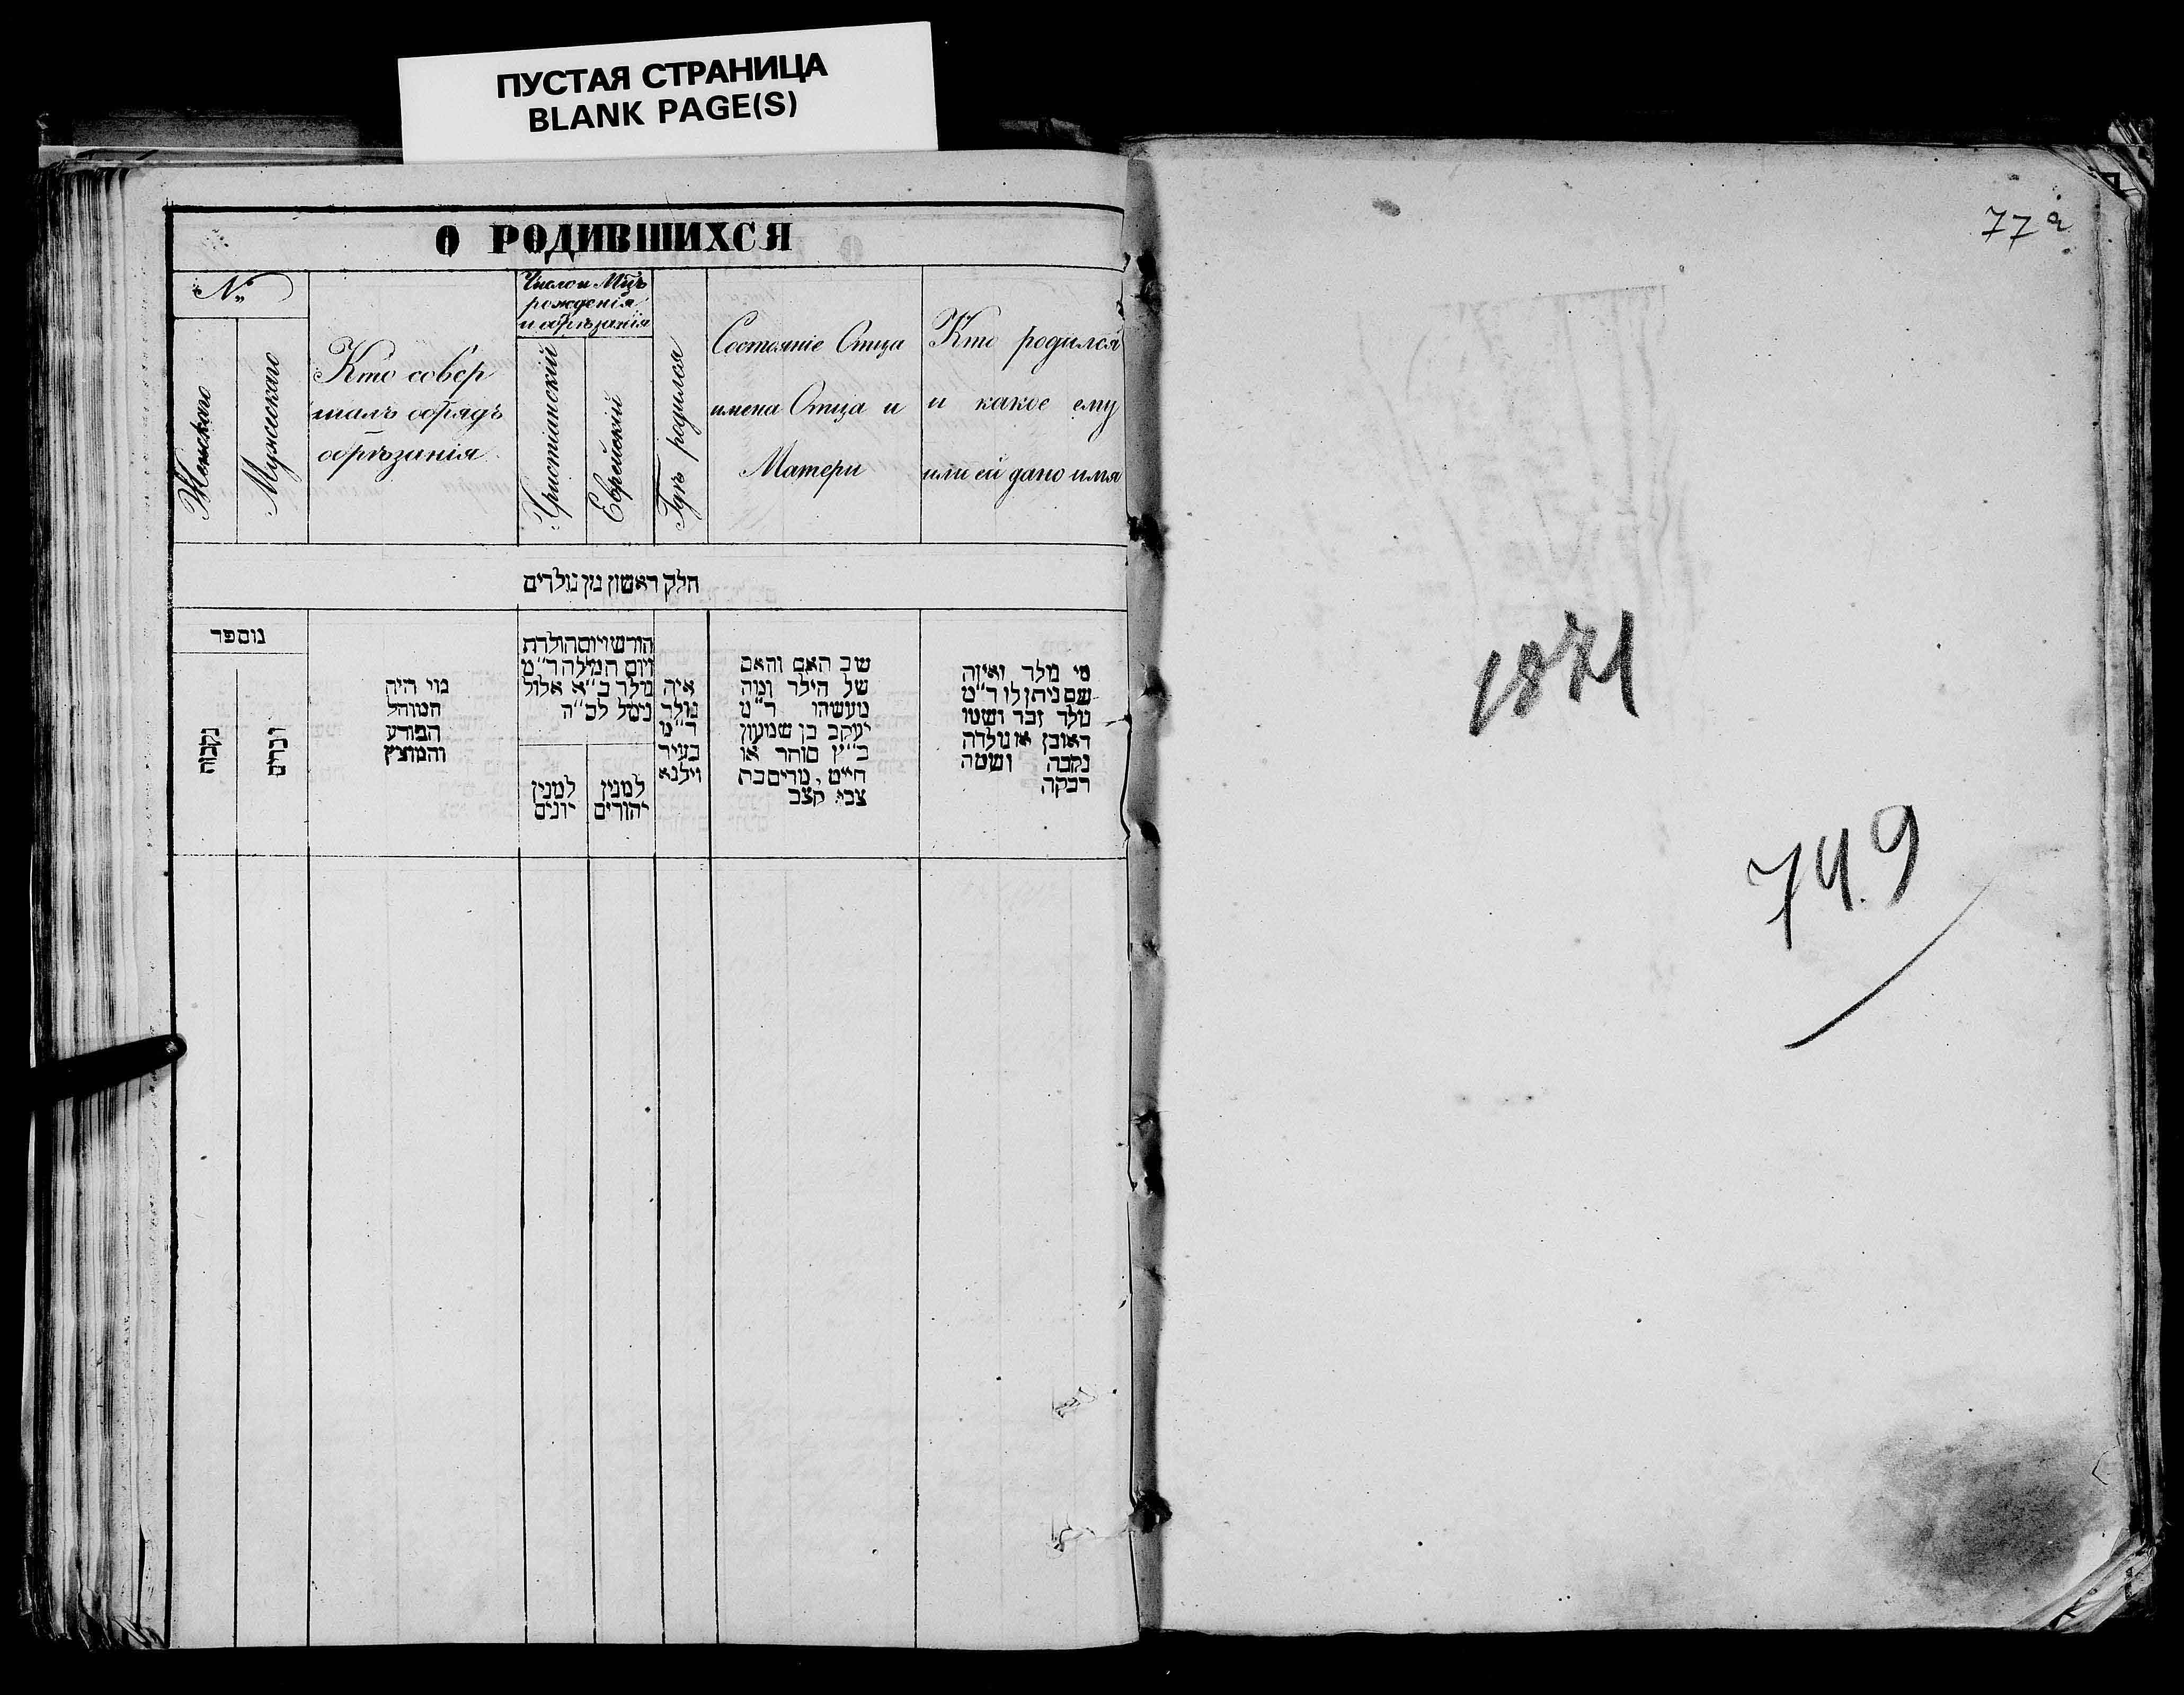 ПУСТАЯ СТРАНИЦА
BLANK PAGE(S)
О РОДИВШИХСЯ
№
Женскаго
Мужескаго
Кто совер
шалъ обрядъ
обрѣзанія
Число и Мѣц
рожденія
и обрѣзанія
Христіанскій
Еврейскій
Гдѣ родился
Состояніе Отца
имена Отца и
Матери
Кто родился
и какое ему
или ей дано имя
חלק ראשון מן נולדים
מספר
נקבות
זכרים
מי היה
המוהל
הפורע
והמוצץ
חודש ויום הולדת
ויום המילה ד״מ
נולד כ״א אלול
נימל לכ״ה
למנין
יונים
למנין
יהודים
איה
נולד
ד״מ
בעיר
ווילנא
שב האם והאם
של הילד ומה
מעשהו ד״מ
יעקב בן שמעון
כ״ץ סוחר או
חייט, מרים בת
צבי קצב
מי נולד ואיזה
שם ניתן לו ד״מ
נולד זכר ושמו
ראובן או נולדה
נקבה ושמה
רבקה
77a
1871
749